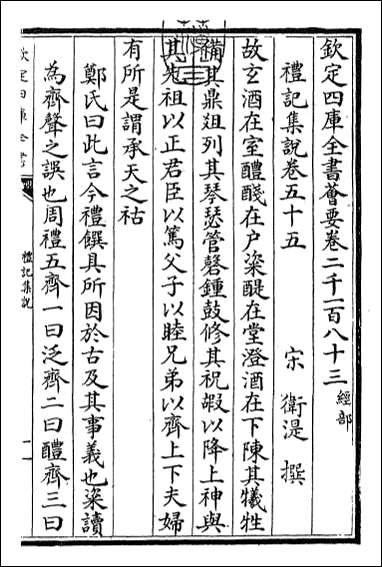 欽定四庫全書薈要卷二千一百八十三 經部
禮記集說卷五十五
宋 衛湜 撰
故玄酒在室醴醆在户粢醍在堂澄酒在下陳其犧牲
備其鼎俎列其琴瑟管磬鍾鼓修其祝嘏以降上神與
其先祖以正君臣以篤父子以睦兄弟以齊上下夫婦
有所是謂承天之祜
鄭氏曰此言今禮饌具所因於古及其事義也粢讀
為齊聲之誤也周禮五齊一曰泛齊二曰醴齊三曰
欽定四庫全書
禮記集說
一